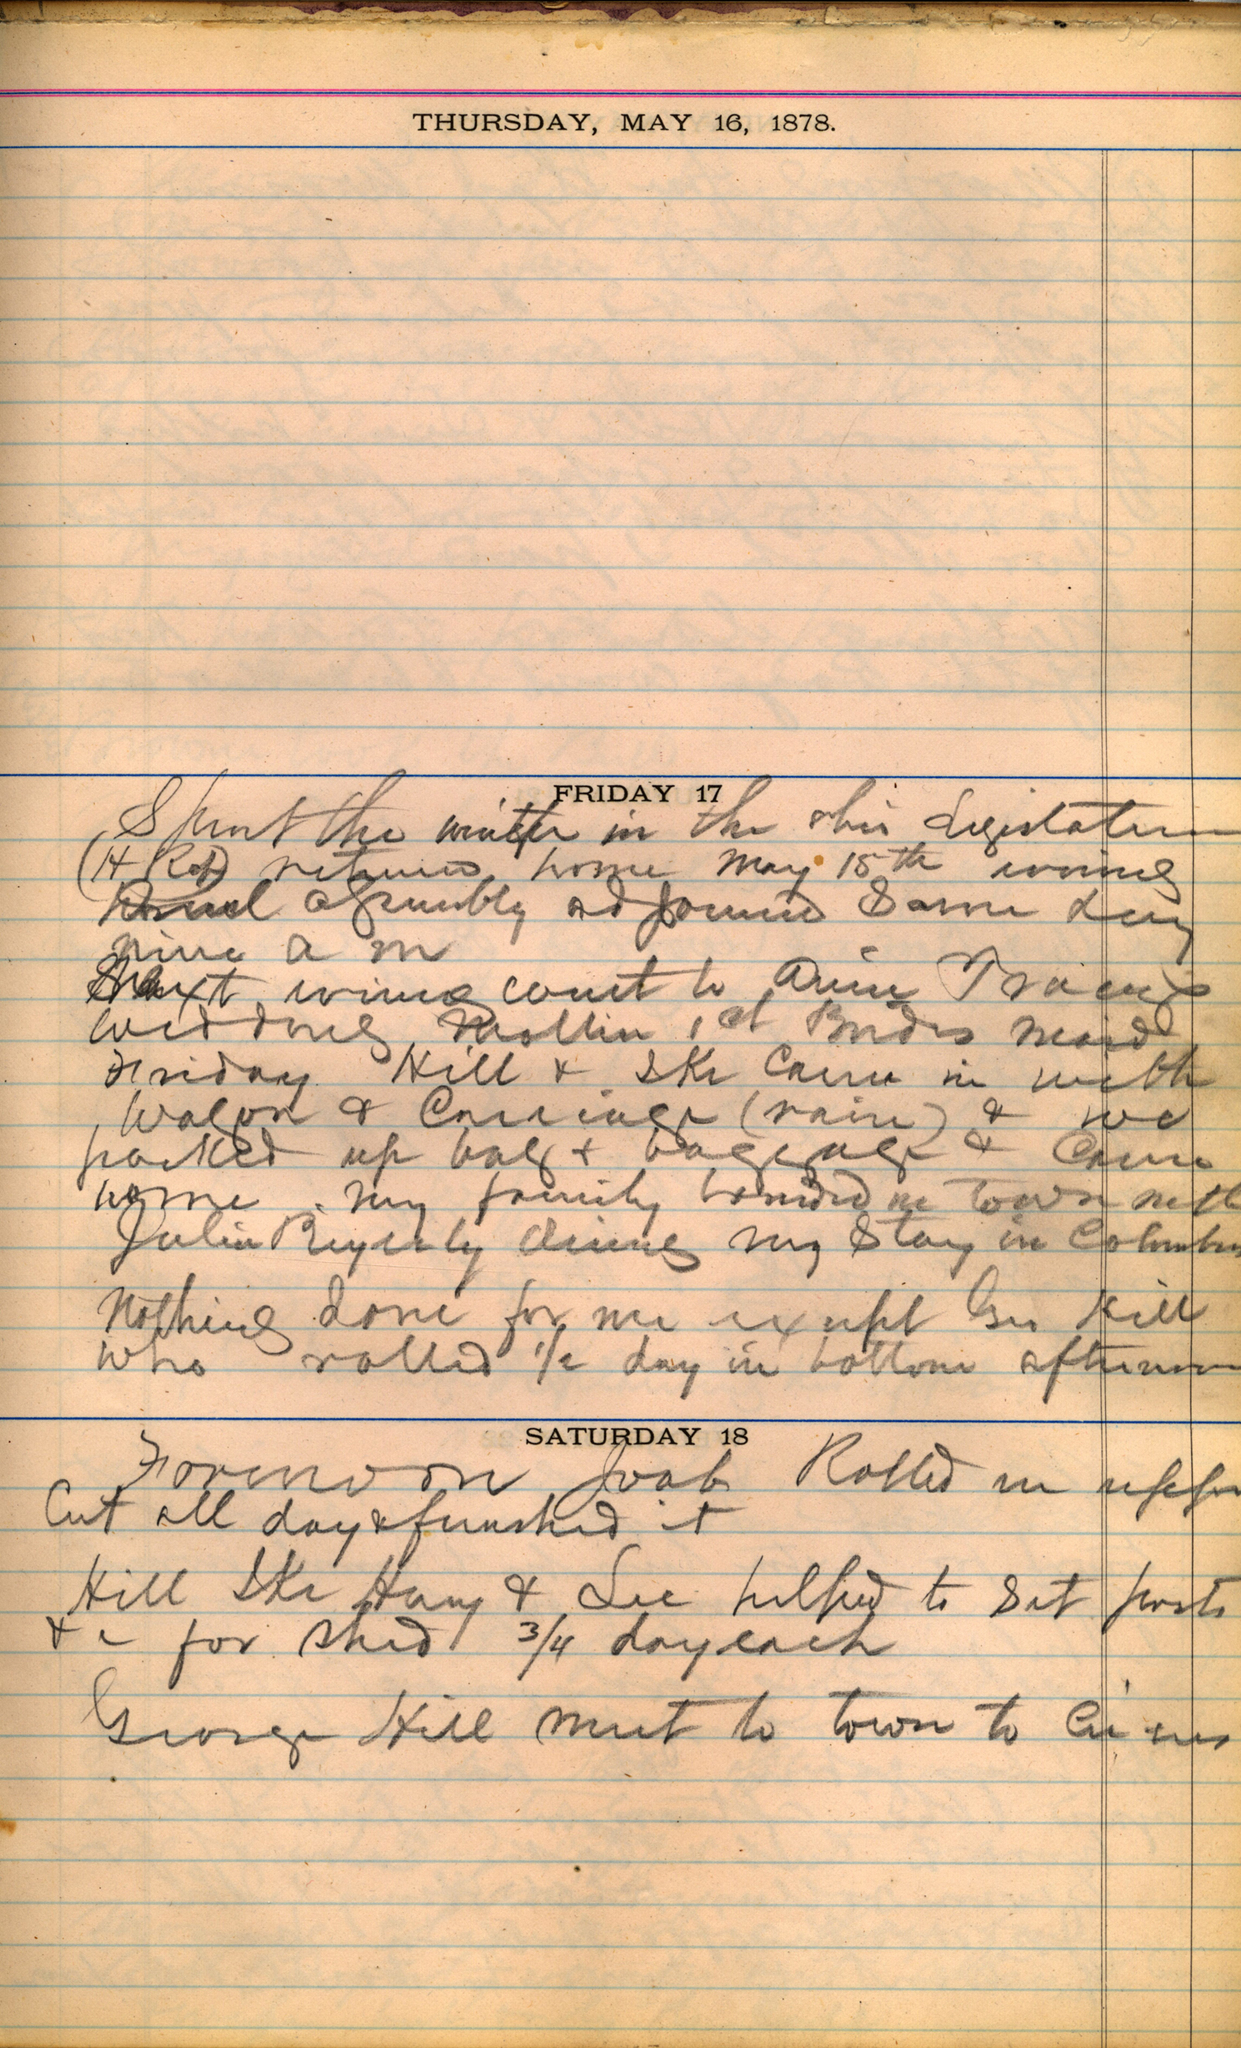 THURSDAY, MAY 16, 1878.
FRIDAY 17
Spent the winter in the Ohio Legislature
(H Rep) returned home May 15th evening
assembly adjourned same day
nine a m
Next evening went to
wedding Mollie 1st Brides maid
Friday Hill & Ike came in with
wagon & Carriage (rain) & we
packed up bag & baggage & came
home. My family boarded in town with
Julia during my stay in Columbus
Nothing done for me except Geo Hill
who rolled 1/2 day in bottom afternoon
SATURDAY 18
Forenoon Joab Rolled in upper
Cut all day & finished it
Hill Ike Harry & Lee helped to set posts
&c for shed 3/4 day each
George Hill went to town to Circus